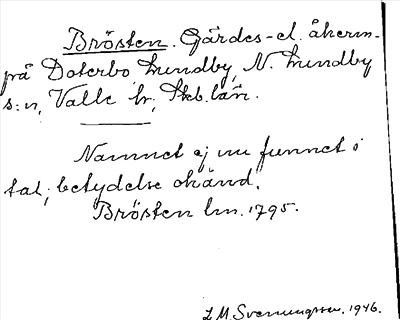 Brösten. Gärdes- el. åkern.
på Doterbo, Lundby, N. Lundby
s:n, Valle hr, Skb. län.
Namnet ej nu funnet i
tal; betydelse okänd.
Brösten lm. 1795.
L M. Svenungsson. 1946.